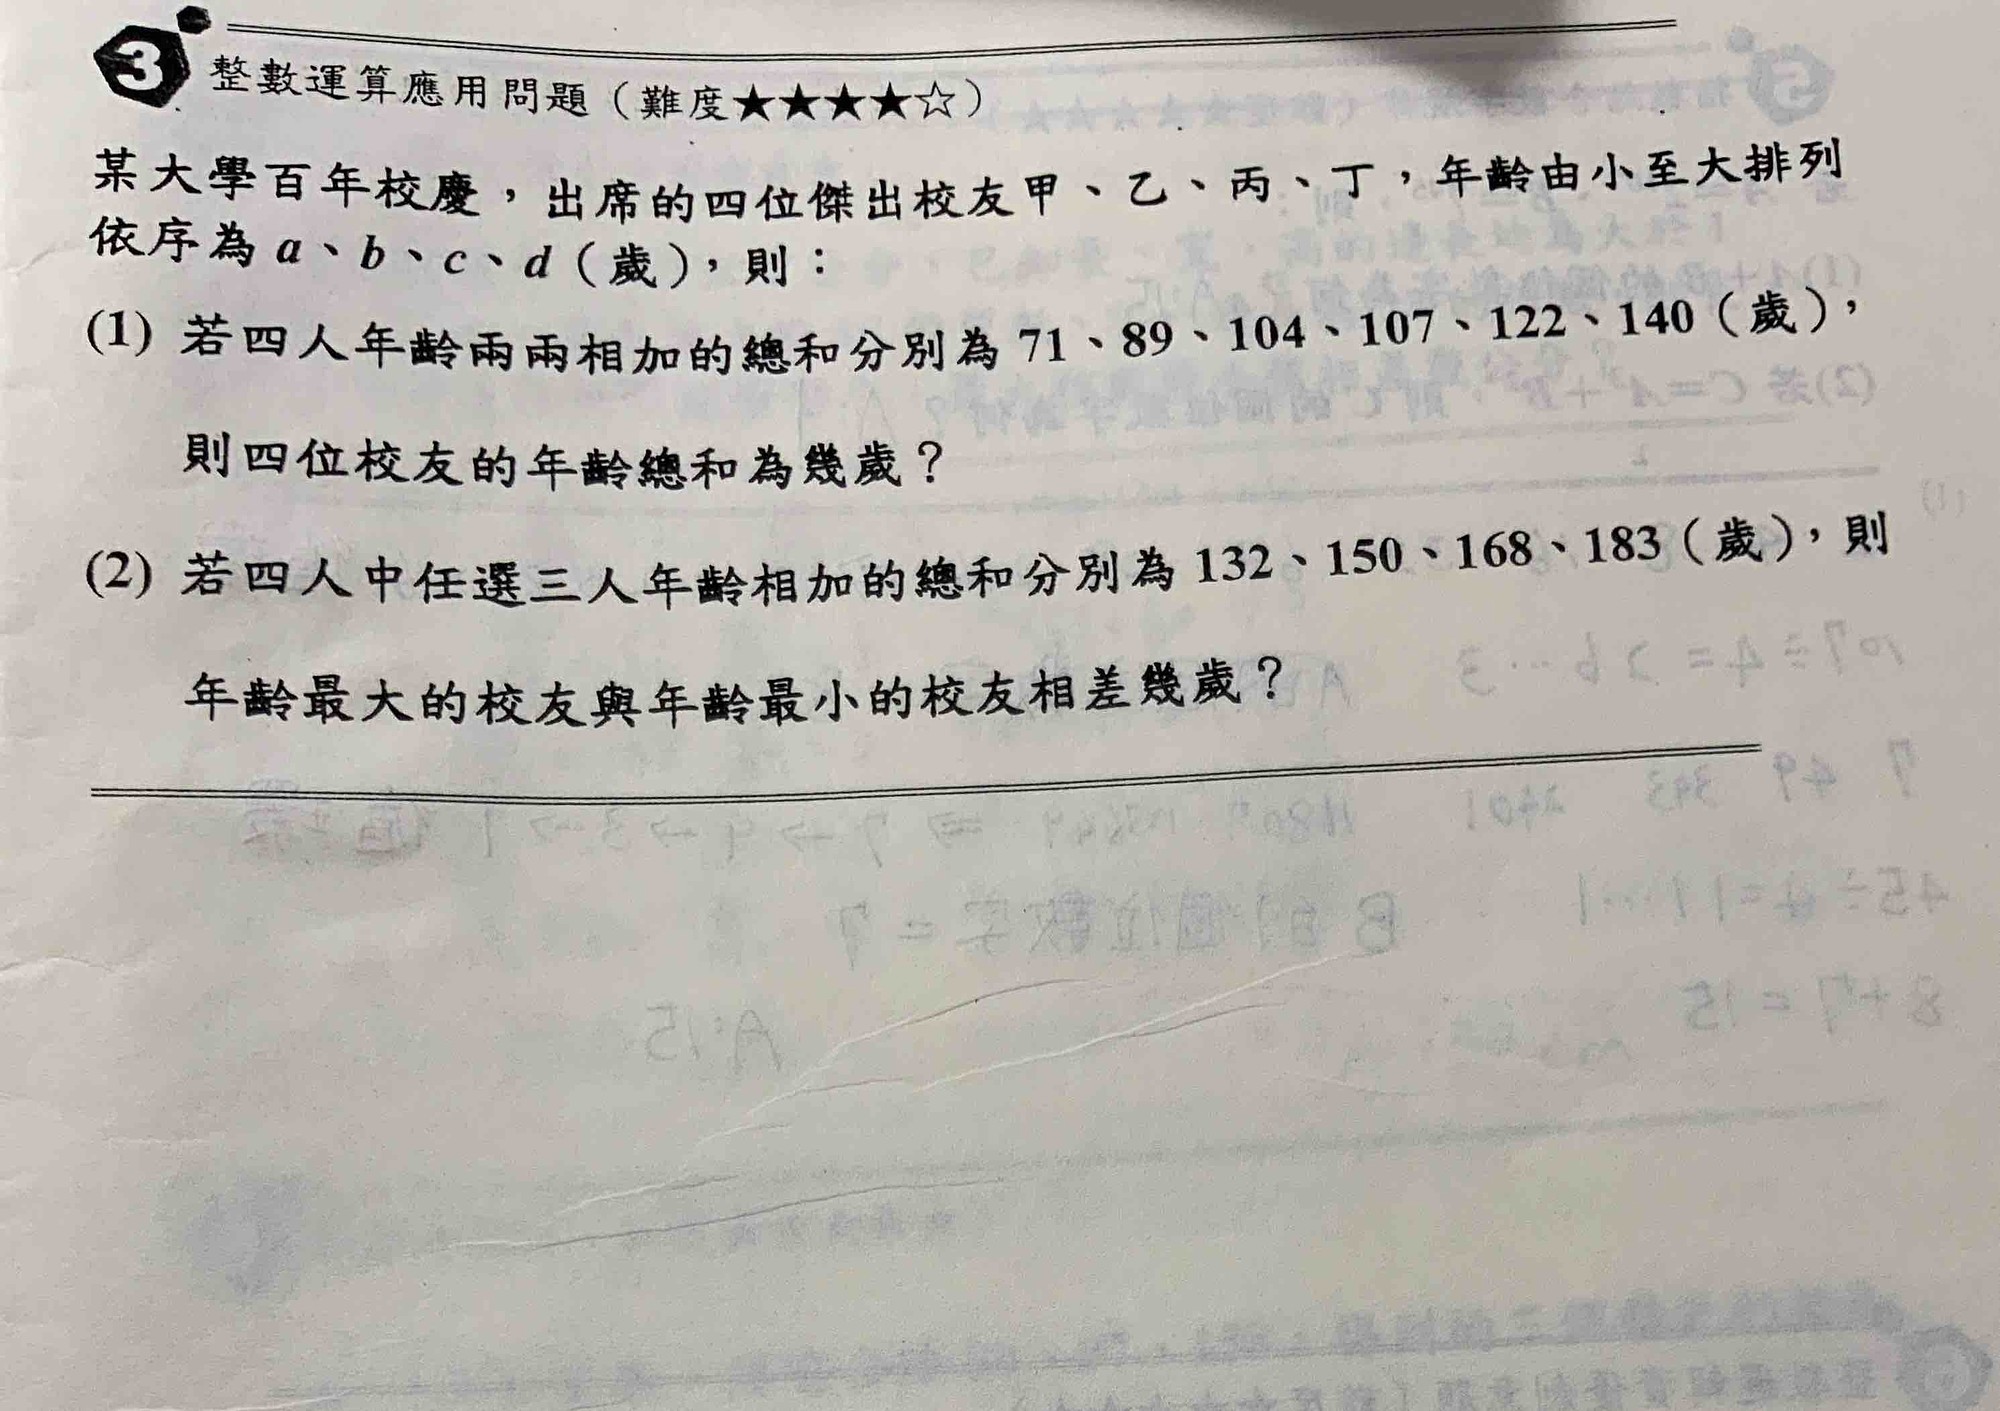 3 整數運算應用問題（難度★★★★☆）
某大學百年校慶，出席的四位傑出校友甲、乙、丙、丁，年齡由小至大排列
依序為 a、b、c、d（歲），則：
(1) 若四人年齡兩兩相加的總和分別為 71、89、104、107、122、140（歲），
則四位校友的年齡總和為幾歲？
(2) 若四人中任選三人年齡相加的總和分別為 132、150、168、183（歲），則
年齡最大的校友與年齡最小的校友相差幾歲？